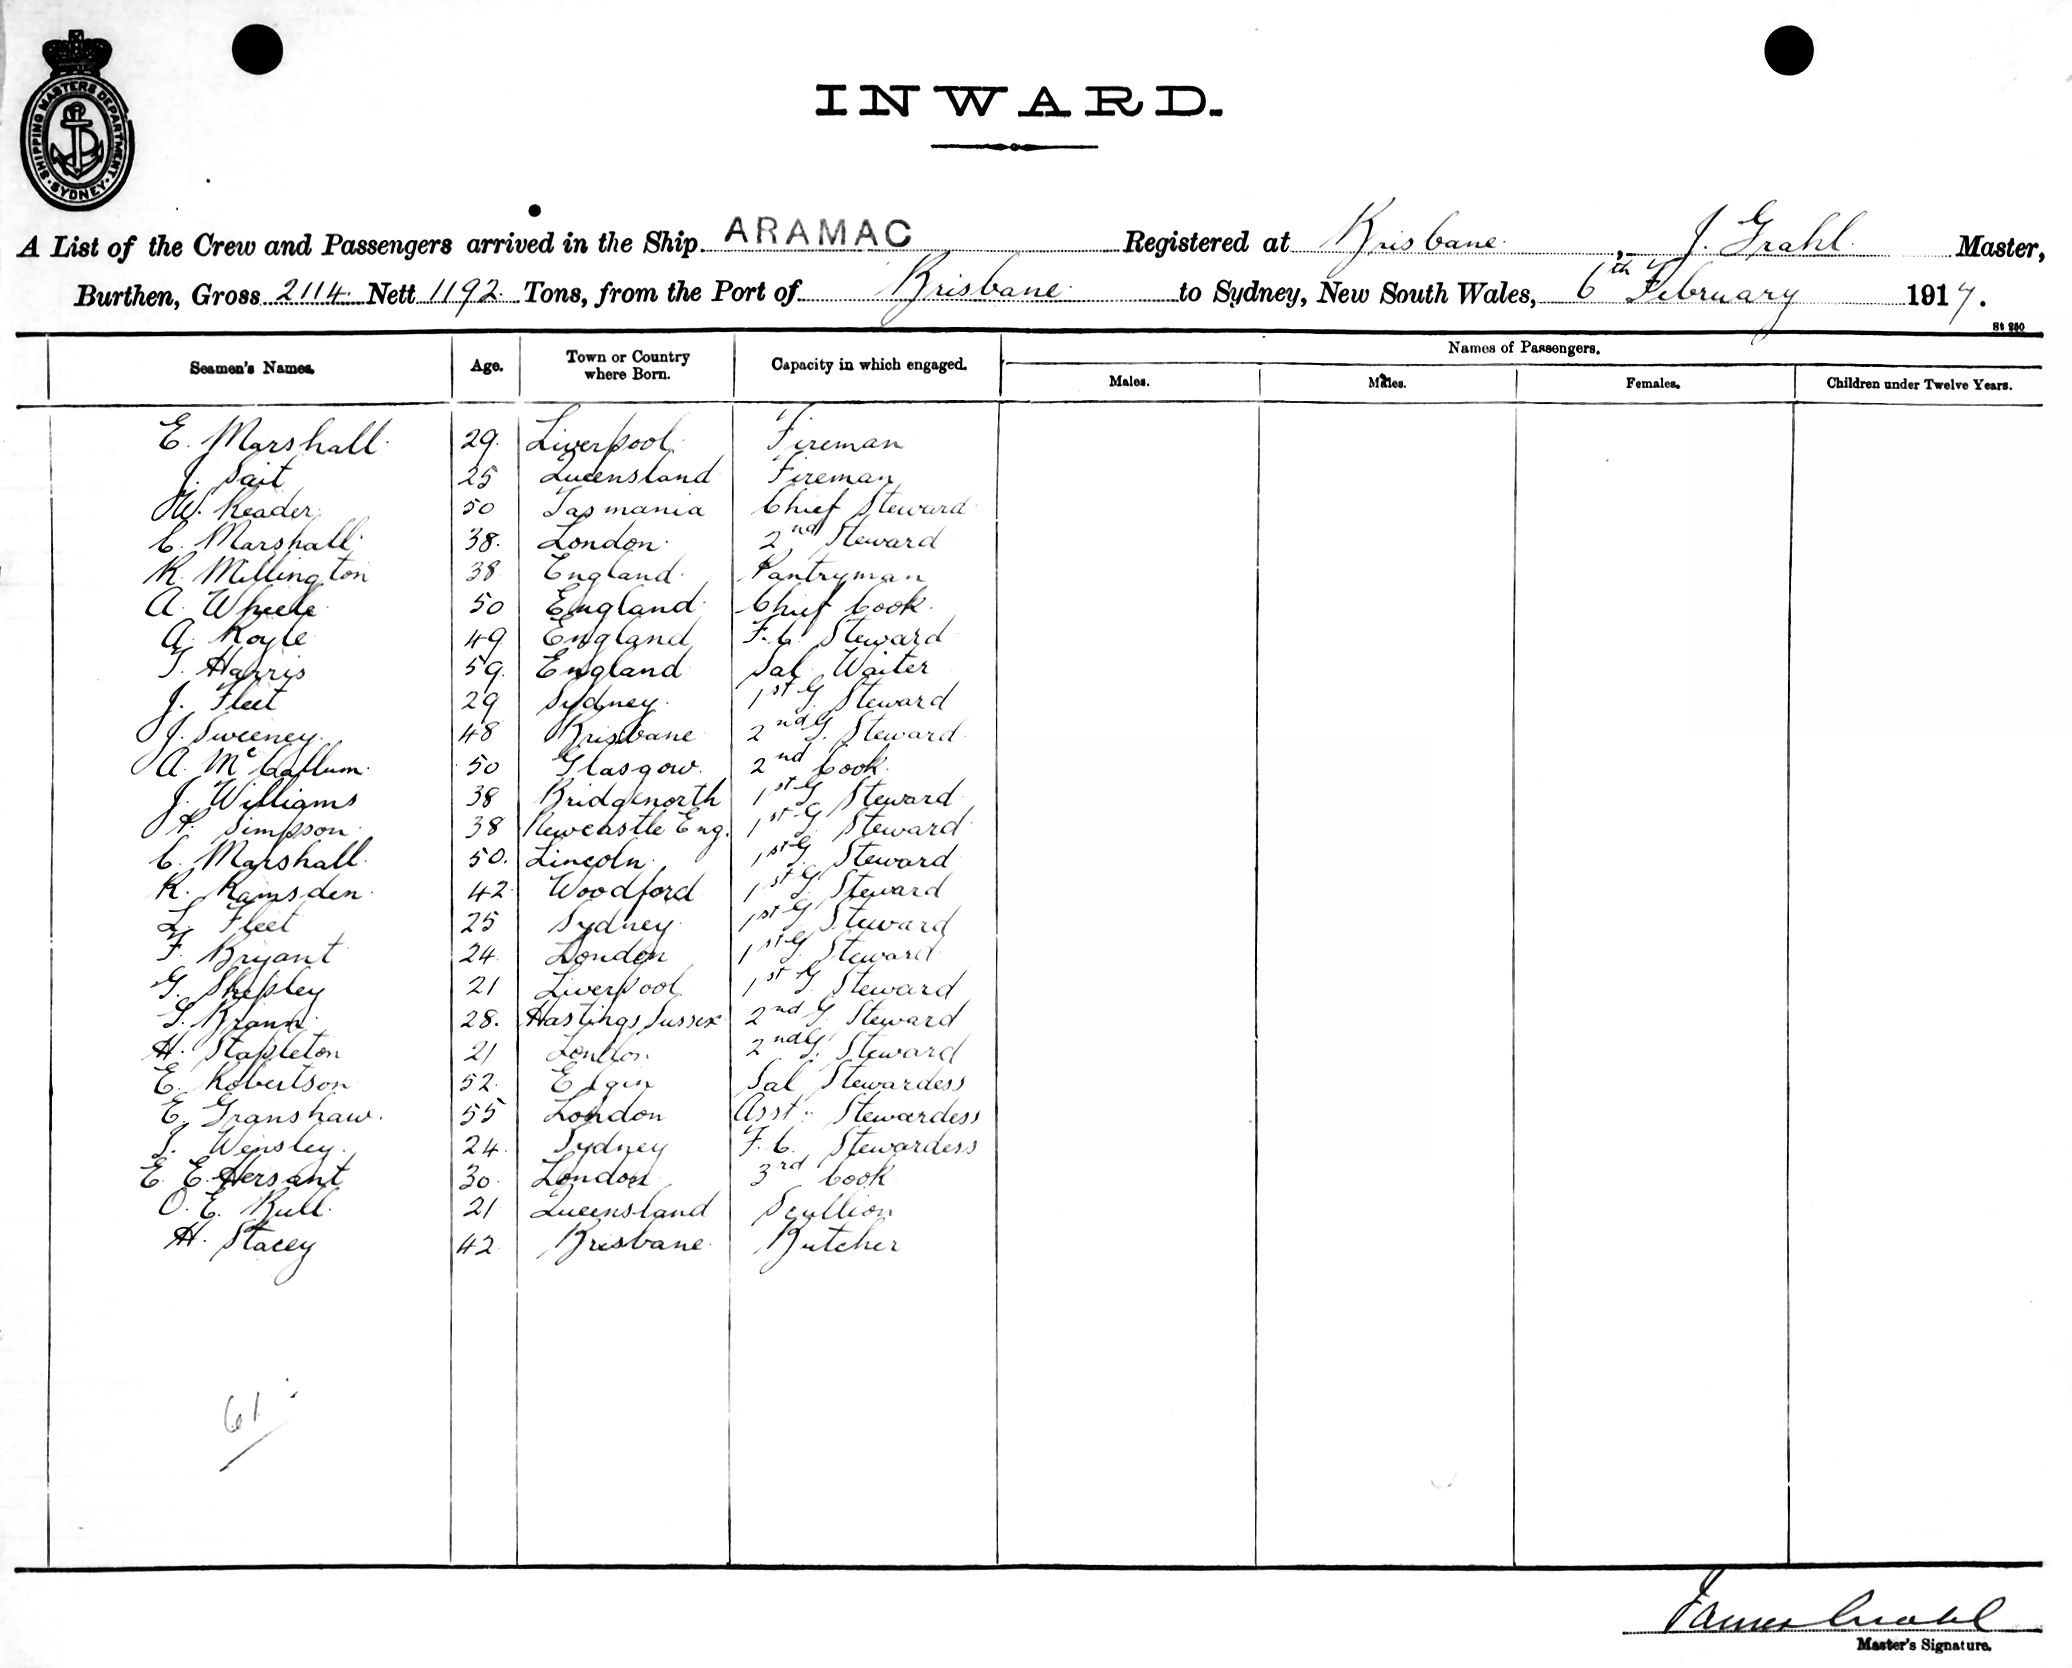 SHIPPING MASTERS DEPARTMENT. SYDNEY.
INWARD.
A List of the Crew and Passengers arrived in the Ship ARAMAC Registered at Brisbane, J. Grahl Master,
Burthen, Gross 2114 Nett 1192 Tons, from the Port of Brisbane to Sydney, New South Wales, 6th February 1917.
St 250
Seamen's Names. Age. Town or Country where Born. Capacity in which engaged. Names of Passengers.
Males. Males. Females. Children under Twelve Years.
E. Marshall 29 Liverpool Fireman
J. Sait 25 Queensland Fireman
W. Reader 50 Tasmania Chief Steward
C. Marshall 38 London 2nd Steward
R. Millington 38 England Pantryman
A. 50 England Chief Cook
A. Royle 49 England F.C. Steward
T. Harris 59 England Sal Waiter
J. Fleet 29 Sydney 1st G. Steward
J. Sweeney 48 Brisbane 2nd G. Steward
A. McCallum 50 Glasgow 2nd Cook
J. Williams 38 Bridgenorth 1st G Steward
Simpson 38 Newcastle Eng. 1st G Steward
C. Marshall 50 Lincoln 1st G. Steward
R. Ramsden 42 Woodford 1st G. Steward
L. Fleet 25 Sydney 1st G Steward
F. Bryant 24 London 1st G. Steward
G. Shepley 21 Liverpool 1st G. Steward
28 Hastings Sussex 2nd G Steward
H. Stapleton 21 London 2nd G. Steward
E. Robertson 52 Elgin Sal Stewardess
E. Granshaw 55 London Asst. Stewardess
Wensley 24 Sydney F.C. Stewardess
E. E. Hersant 30 London 3rd Cook
O. E. Bull 21 Queensland Scullion
H. Stacey 42 Brisbane Butcher
61
James Grahl
Master's Signature.